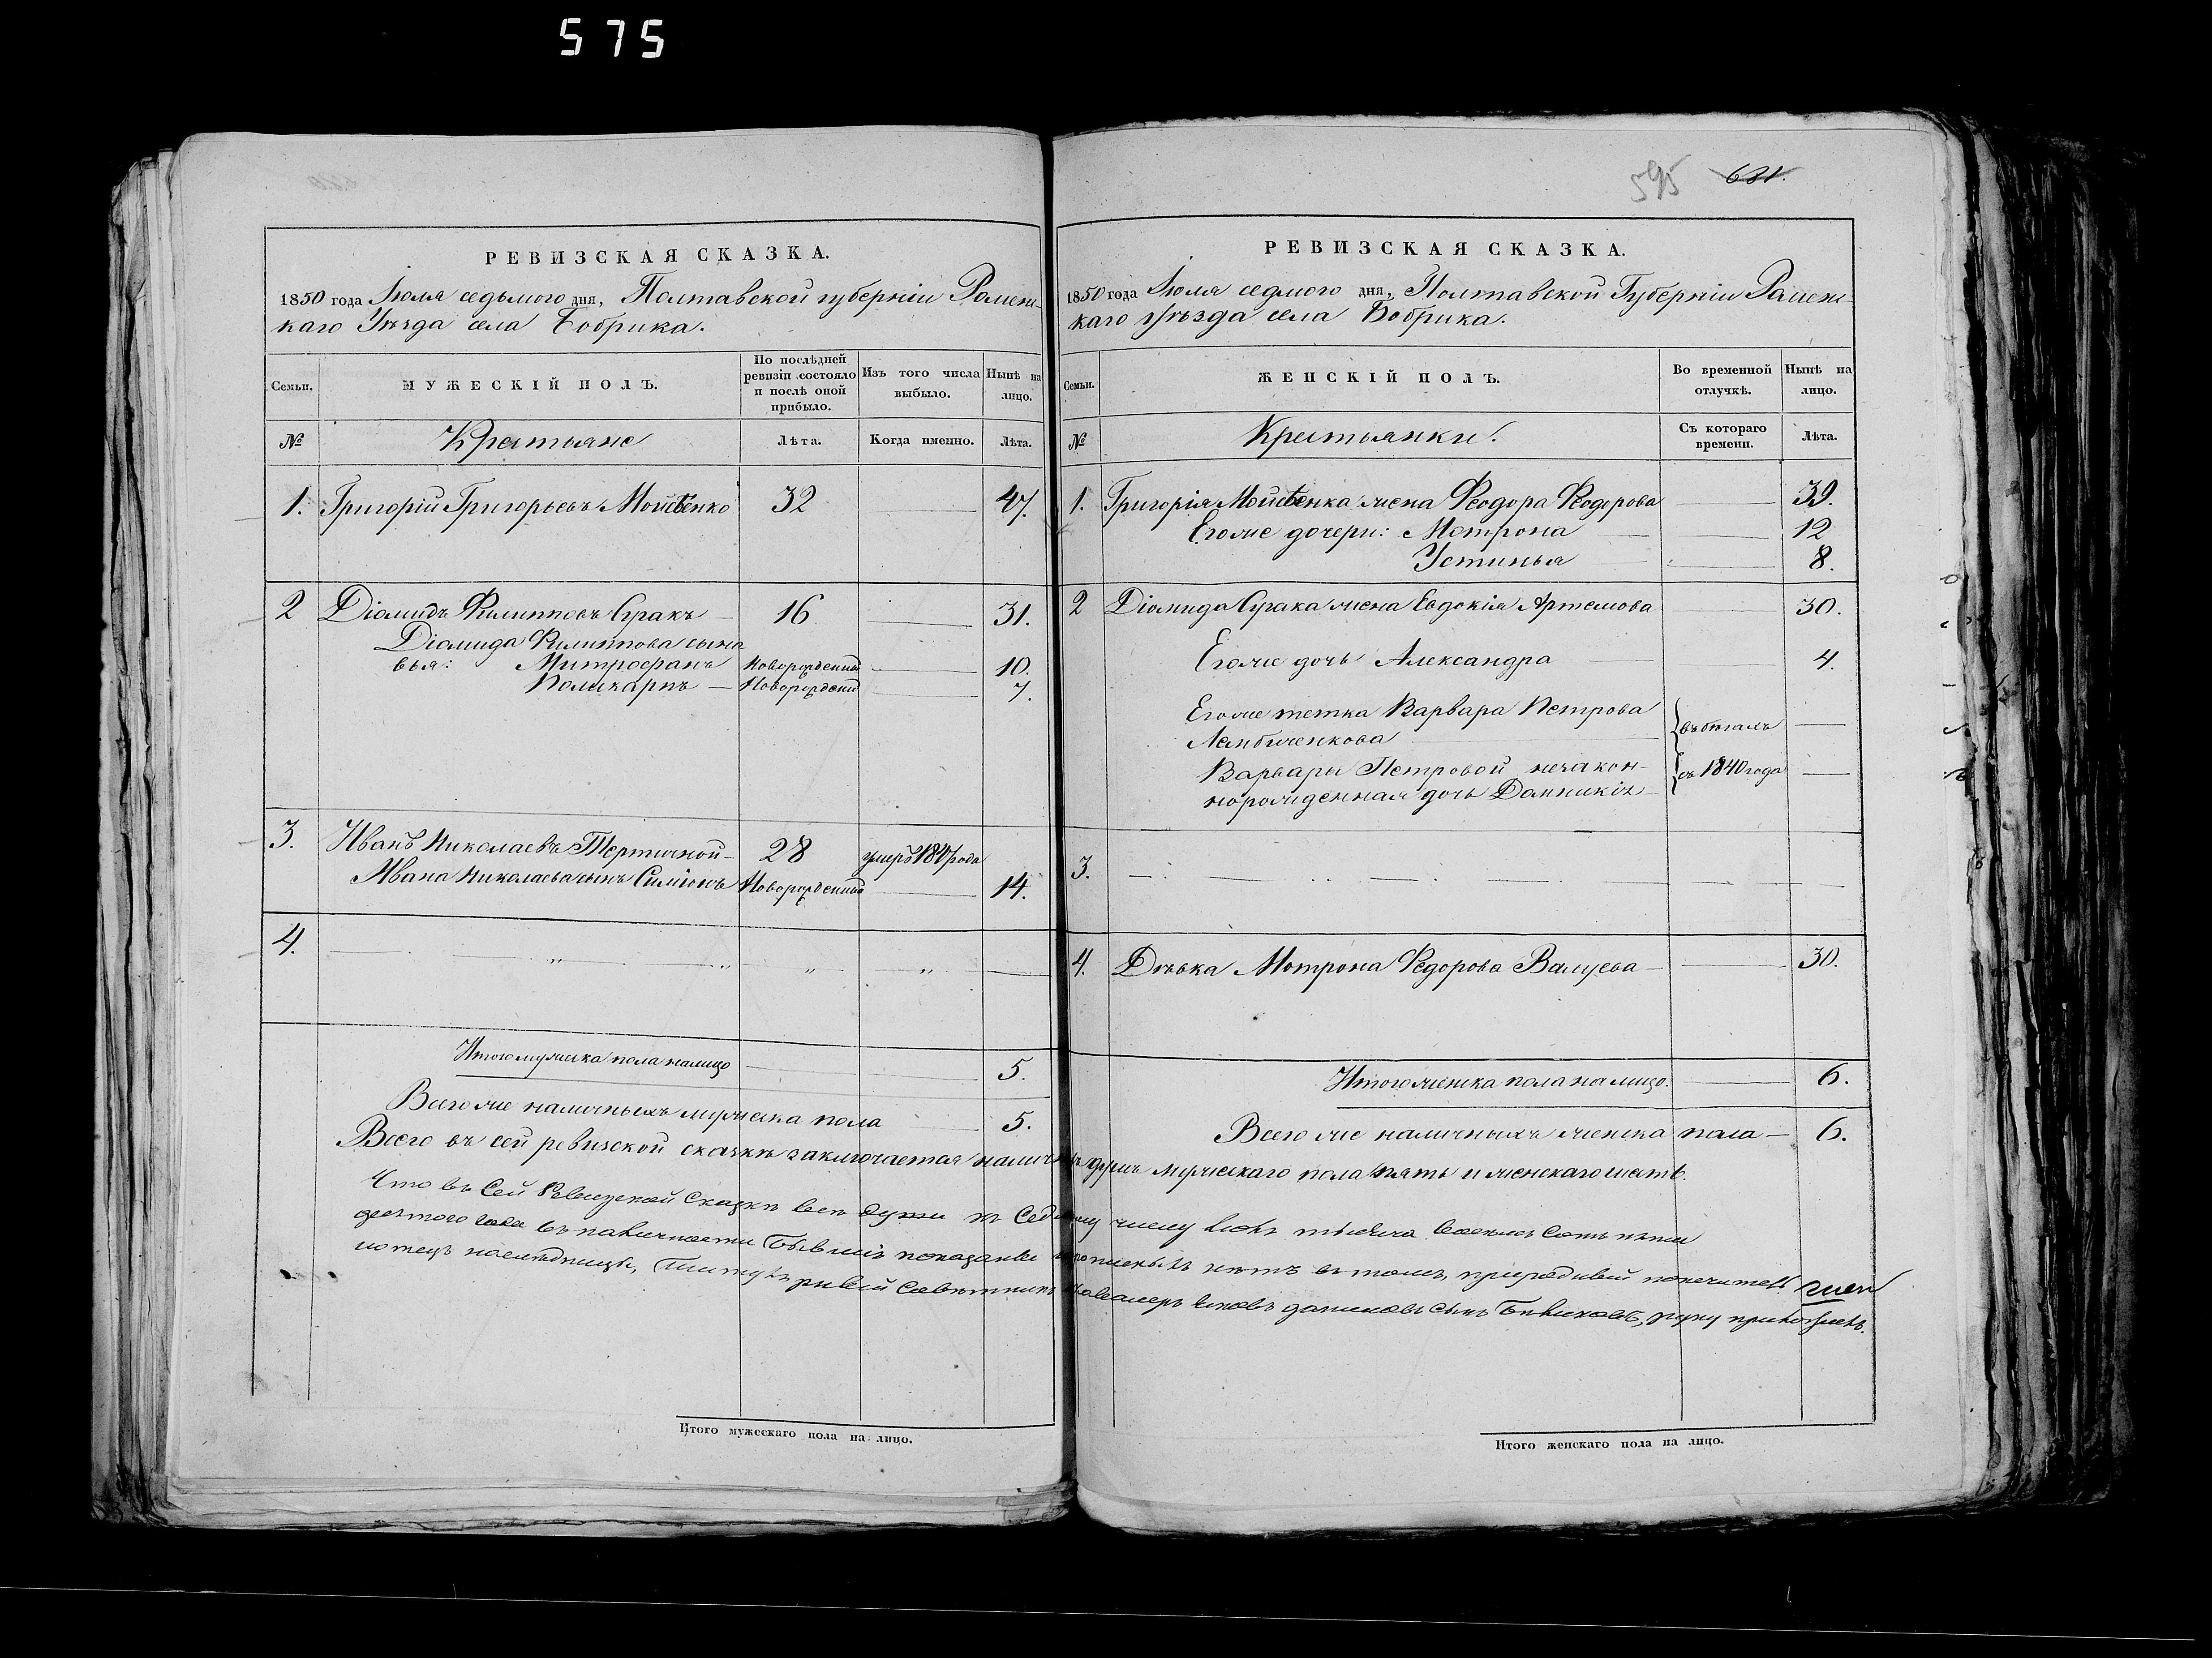 575
РЕВИЗСКАЯ СКАЗКА.
1850 года Июля седьмого дня, Полтавской губерніи Роменс-
каго Уѣзда села Бобрика.
Семьи.
МУЖЕСКІЙ ПОЛЪ.
По послѣдней ревизіи состояло и послѣ оной прибыло.
Изъ того числа выбыло.
Нынѣ на лицо.
№
Крестьяне
Лѣта.
Когда именно.
Лѣта.
1. Григорій Григорьевъ 32 47.
2 Діамидъ Филиповъ 16 31.
Діамида Филипова сыно
вья: Митрофанъ Новорожденный 10.
Поликарпъ Новорожденный 7.
3. Иванъ Николаевъ 28 умеръ 1847 года
Ивана Николаева сынъ Симіонъ Новорожденный 14.
4.
Итого мужеска пола налицо 5.
Всего же наличныхъ мужеска пола 5.
595 681.
РЕВИЗСКАЯ СКАЗКА.
1850 года Июля седмого дня, Полтавской Губерніи Роменс-
каго Уѣзда села Бобрика.
Семьи.
ЖЕНСКІЙ ПОЛЪ.
Во временной отлучкѣ.
Нынѣ на лицо.
№
Крестьянки.
Съ котораго времени.
Лѣта.
1. Григорія жена Феодора Феодорова 39.
Егоже дочери: Мотрона 12
Устинья 8.
2 Діамида жена Евдокія Артемова 30.
Егоже дочь Александра 4.
Егоже тетка Варвара Петрова
въ бѣгахъ
Варвары Петровой незакон-
съ 1840 года
норожденная дочь
3.
4. Дѣвка Мотрона Федорова Валуева 30.
Итого женска пола на лицо. 6.
Всего же наличныхъ женска пола 6.
Всего въ сей ревизской сказкѣ заключается наличныхъ душъ мужескаго пола пять и женскаго шесть.
Что въ Сей Ревизской Сказкѣ всѣ души къ Седьмому числу Июля тысяча Восемь Сотъ пяти
десятого Года въ наличности Бывшіе показаны и нѣтъ въ томъ, природный
Советникъ и Кавалеръ сынъ руку приложилъ.
Итого мужескаго пола на лицо.
Итого женскаго пола на лицо.